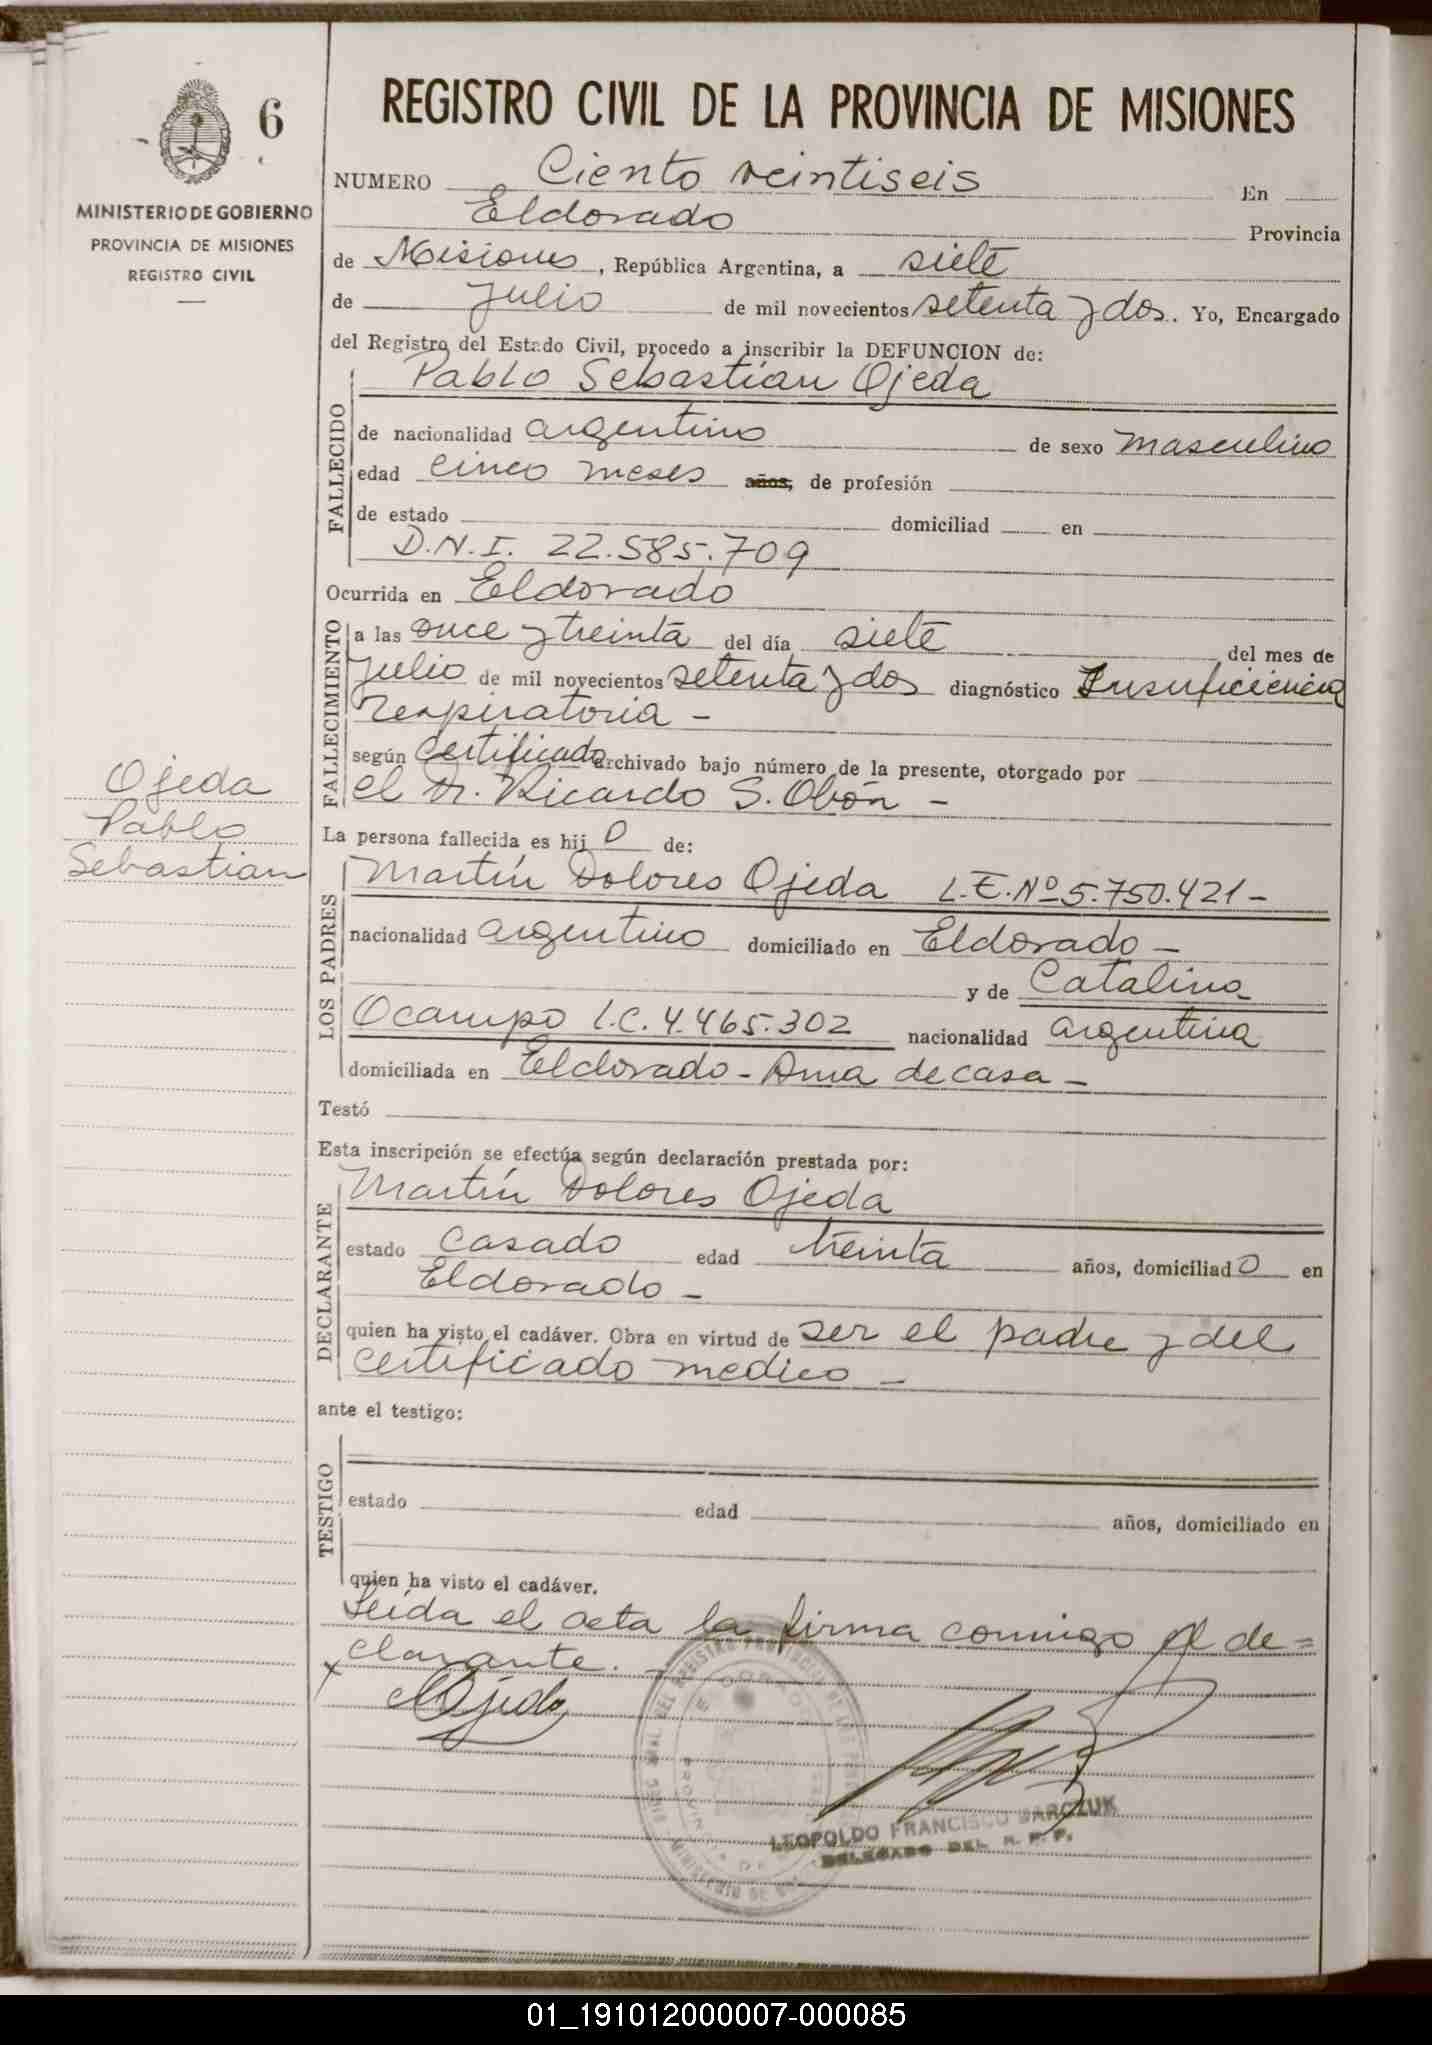 6
MINISTERIO DE GOBIERNO
PROVINCIA DE MISIONES
REGISTRO CIVIL
REGISTRO CIVIL DE LA PROVINCIA DE MISIONES
NUMERO Ciento veintiseis En
Eldorado Provincia
de Misiones, República Argentina, a siete
de Julio de mil novecientos setenta y dos. Yo, Encargado
del Registro del Estado Civil, procedo a inscribir la DEFUNCION de:
Pablo Sebastian Ojeda
FALLECIDO
de nacionalidad argentino de sexo masculino
edad cinco meses años, de profesión
de estado domiciliad en
D.N.I. 22.585.709
Ocurrida en Eldorado
FALLECIMIENTO
a las once y treinta del día siete del mes de
Julio de mil novecientos setenta y dos diagnóstico Insuficiencia
respiratoria -
según Certificado archivado bajo número de la presente, otorgado por
el Dr. Ricardo S. Obón -
Ojeda
Pablo
Sebastian
La persona fallecida es hij o de:
LOS PADRES
Martín Dolores Ojeda L.E.Nº 5.750.421 -
nacionalidad argentino domiciliado en Eldorado -
y de Catalina
Ocampo L.C. 4.465.302 nacionalidad argentina
domiciliada en Eldorado - Ama de casa -
Testó
Esta inscripción se efectúa según declaración prestada por:
DECLARANTE
Martín Dolores Ojeda
estado casado edad treinta años, domiciliado en
Eldorado -
quien ha visto el cadáver. Obra en virtud de ser el padre y del
certificado medico -
ante el testigo:
TESTIGO
estado edad años, domiciliado en
quien ha visto el cadáver.
Leída el acta la firma conmigo el de=
clarante. -
x Ojeda
LEOPOLDO FRANCISCO BARCZUK
DELEGADO DEL R. P. P.
01_191012000007-000085